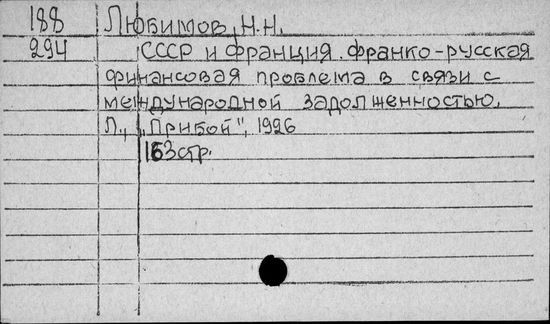 188 Любимов, Н.Н.
294 СССР и Франция. Франко-русская
финансовая проблема в связи с
международной задолженностью.
Л., „Прибой", 1926
163 стр.